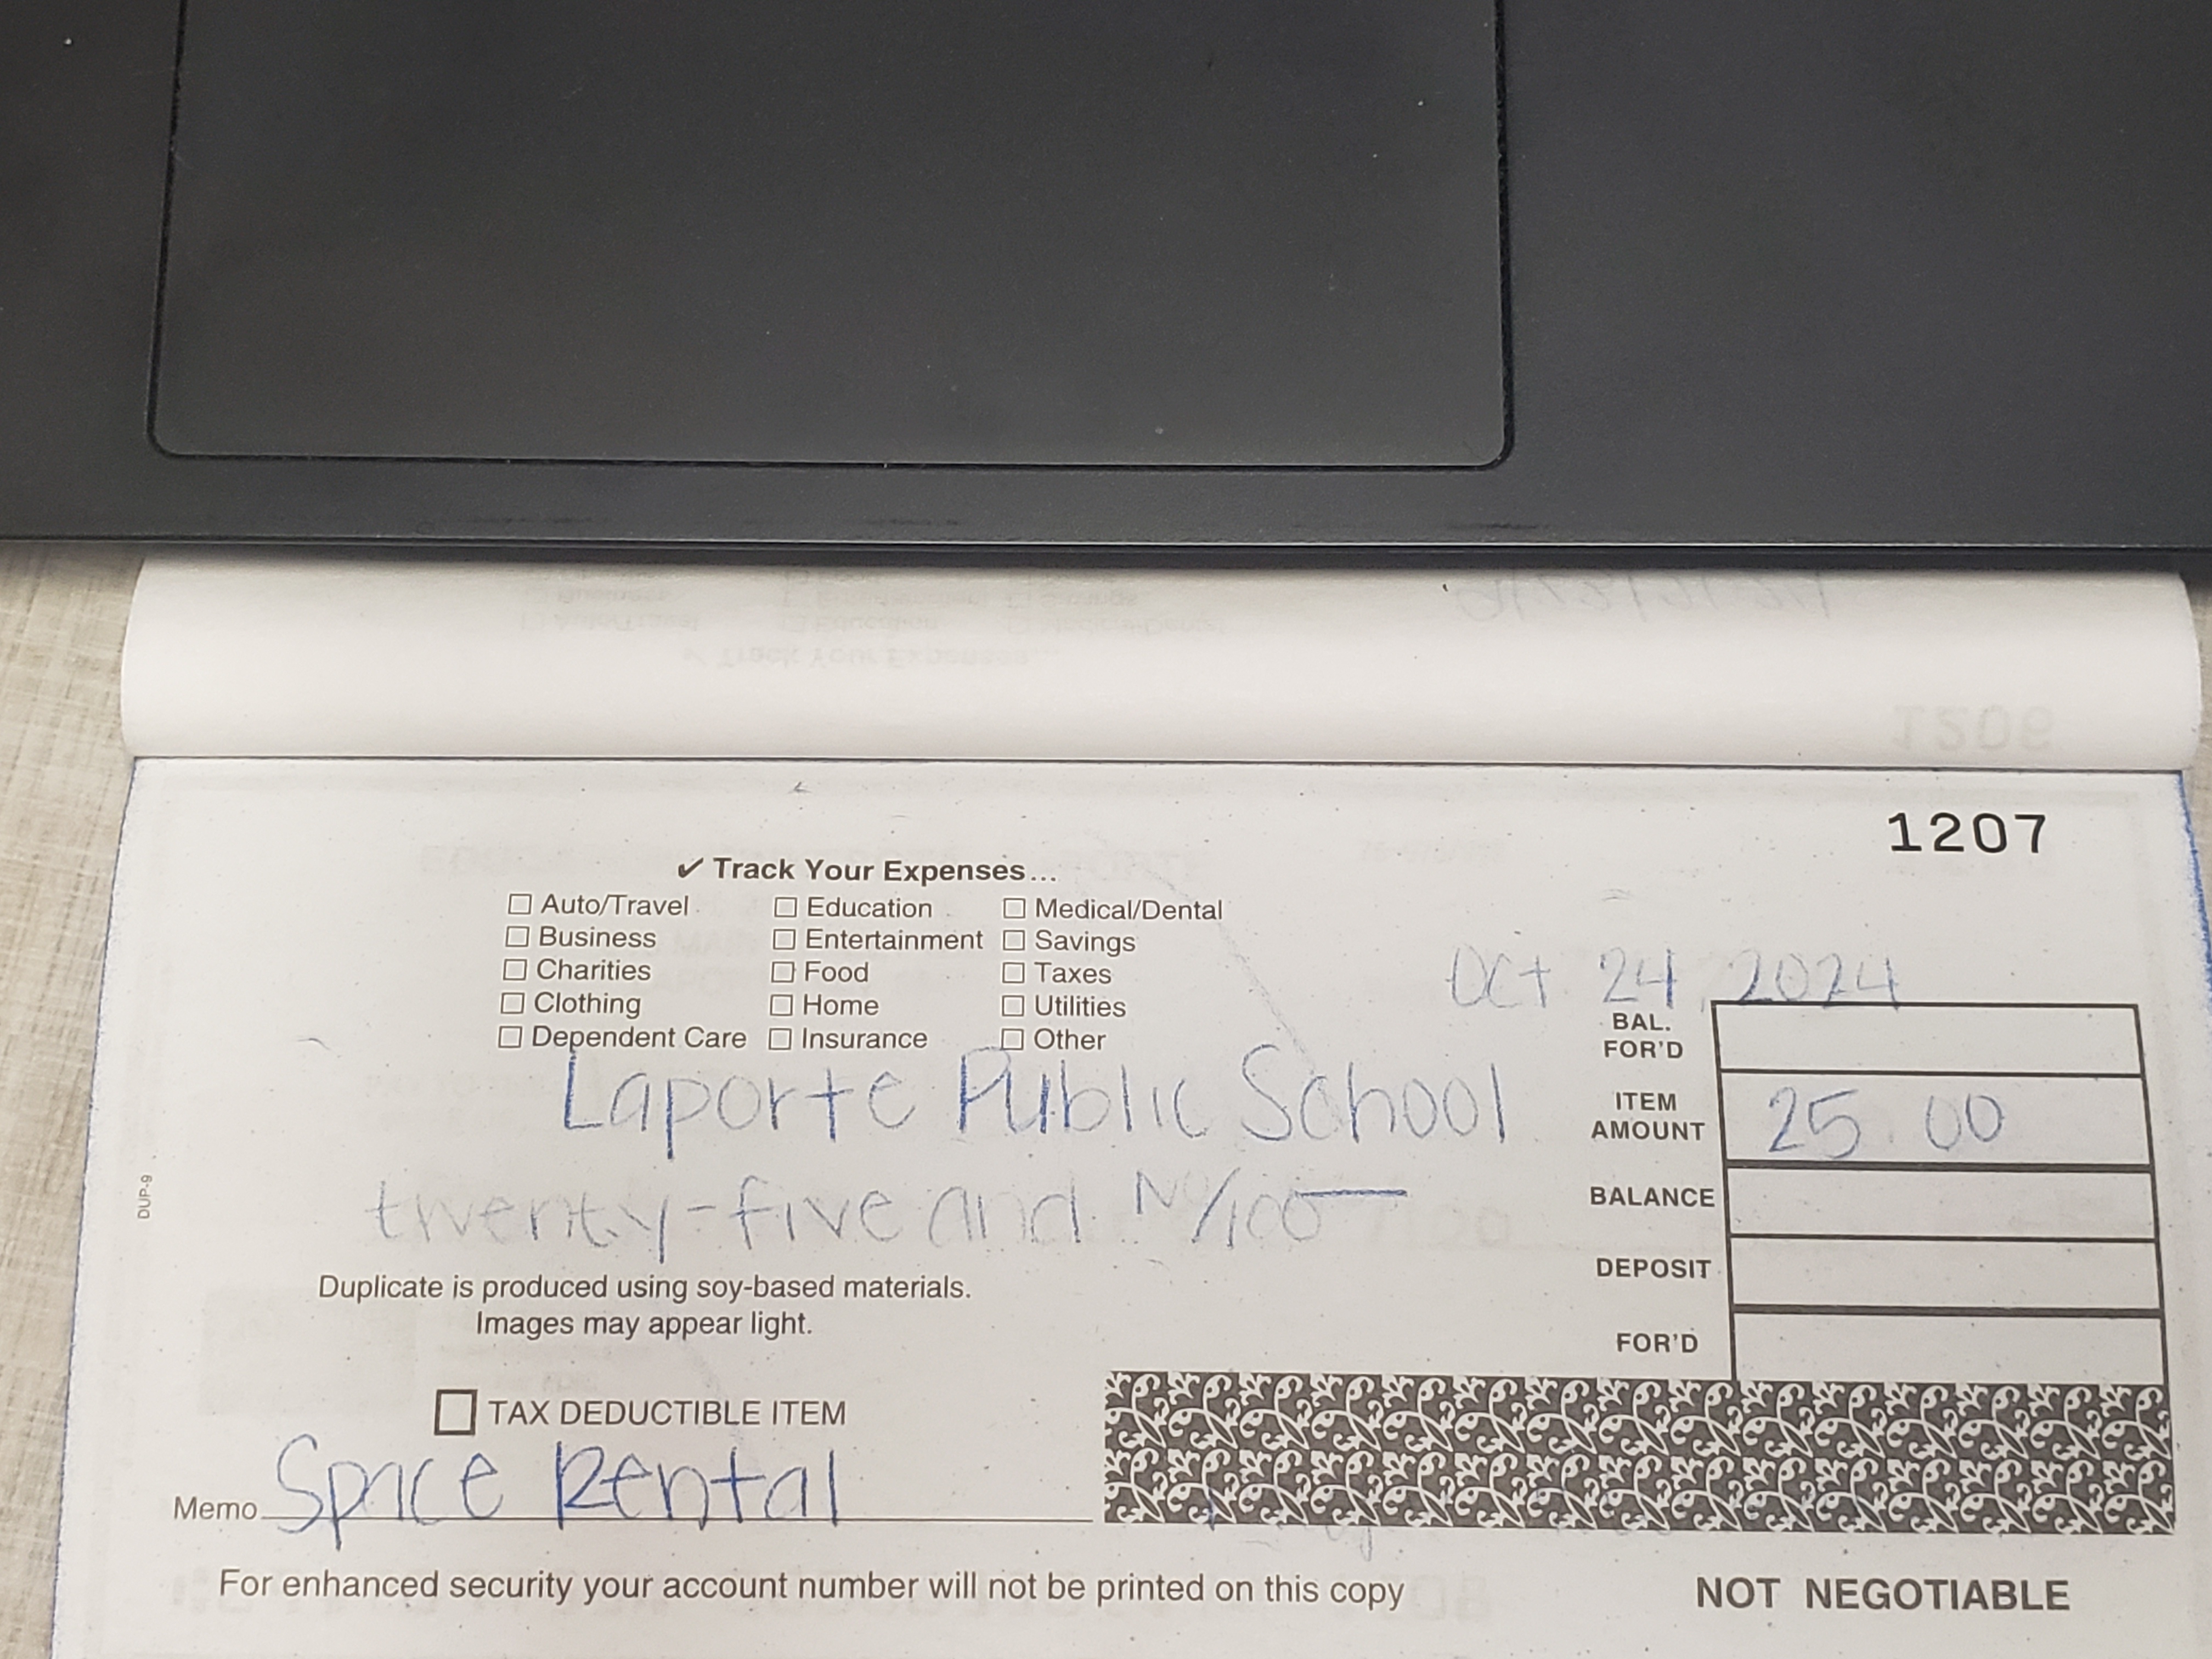 1206
1207
✓ Track Your Expenses...
☐ Auto/Travel ☐ Education ☐ Medical/Dental
☐ Business ☐ Entertainment ☐ Savings
☐ Charities ☐ Food ☐ Taxes
☐ Clothing ☐ Home ☐ Utilities
☐ Dependent Care ☐ Insurance ☐ Other
Oct 24, 2024
BAL. FOR'D
Laporte Public School
ITEM AMOUNT 25 00
twenty-five and No/100
BALANCE
DEPOSIT
FOR'D
DUP-9
Duplicate is produced using soy-based materials.
Images may appear light.
☐ TAX DEDUCTIBLE ITEM
Memo Space Rental
For enhanced security your account number will not be printed on this copy
NOT NEGOTIABLE